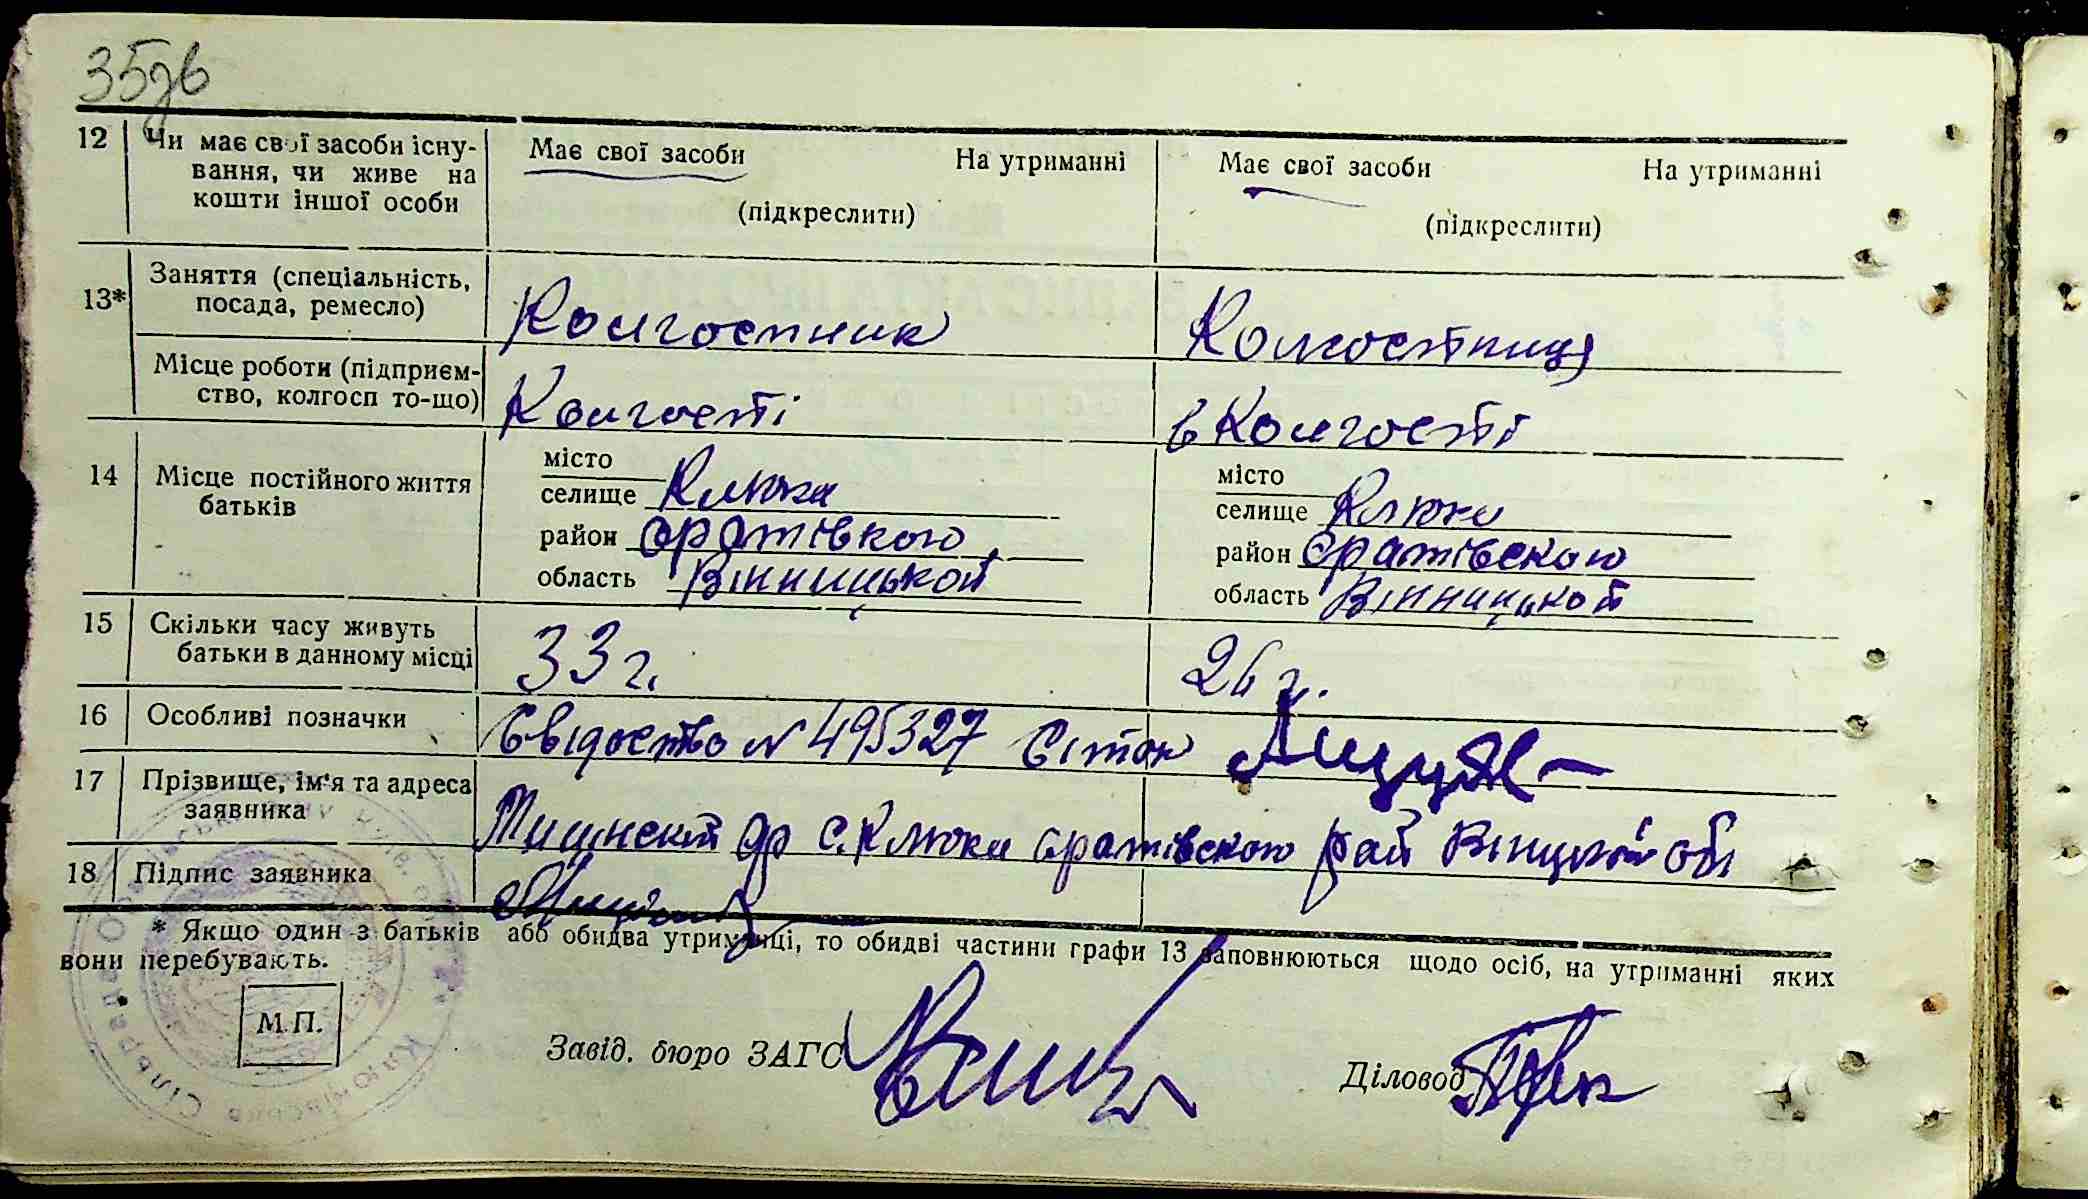 35зв
12 Чи має свої засоби існу- Має свої засоби На утриманні Має свої засоби На утриманні
вання, чи живе на
кошти іншої особи (підкреслити) (підкреслити)
13* Заняття (спеціальність, посада, ремесло) Колгостник Колгостниця
Місце роботи (підприєм-
ство, колгосп то-що) Колгості в Колгості
14 Місце постійного життя батьків
місто місто
селище Клюки селище Клюки
район оратівкого район оратівского
область Вінницькой область Вінницькой
15 Скільки часу живуть
батьки в данному місці 33 г. 26 г.
16 Особливі позначки Свідоство N 495327
17 Прізвище, ім'я та адреса
заявника с. Клюки оратівского рай
18 Підпис заявника
* Якщо один з батьків або обидва утриманці, то обидві частини графи 13 заповнюються щодо осіб, на утриманні яких
вони перебувають.
М.П.
Завід. бюро ЗАГС Діловод